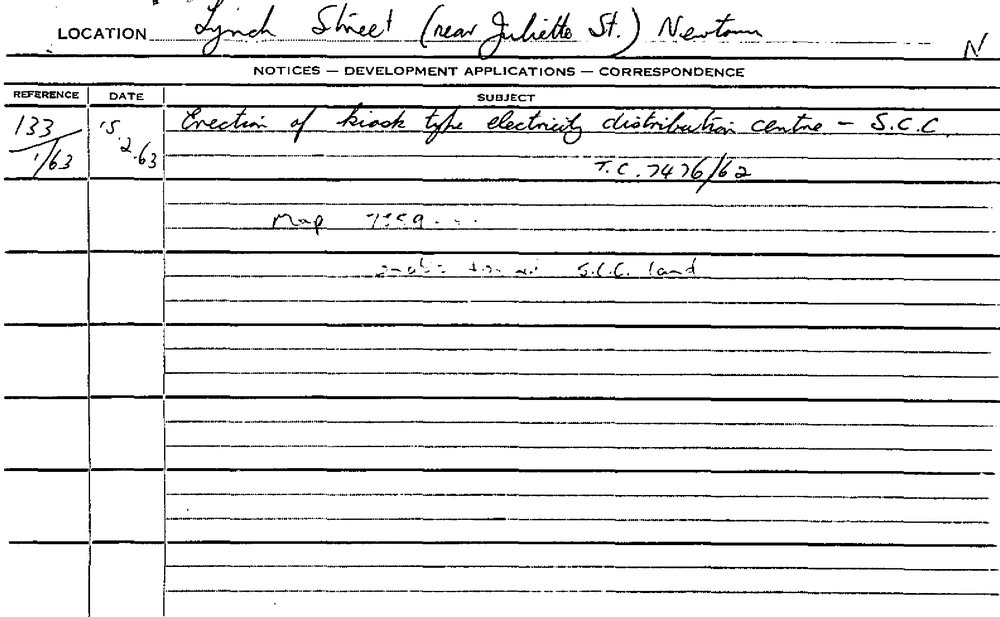 LOCATION Lynch Street (near Juliette St.) Newtown N
NOTICES — DEVELOPMENT APPLICATIONS — CORRESPONDENCE
REFERENCE DATE SUBJECT
133/1/63 15.2.63 Erection of kiosk type electricity distribution centre - S.C.C.
T.C. 7476/62
Map
S.C.C. land